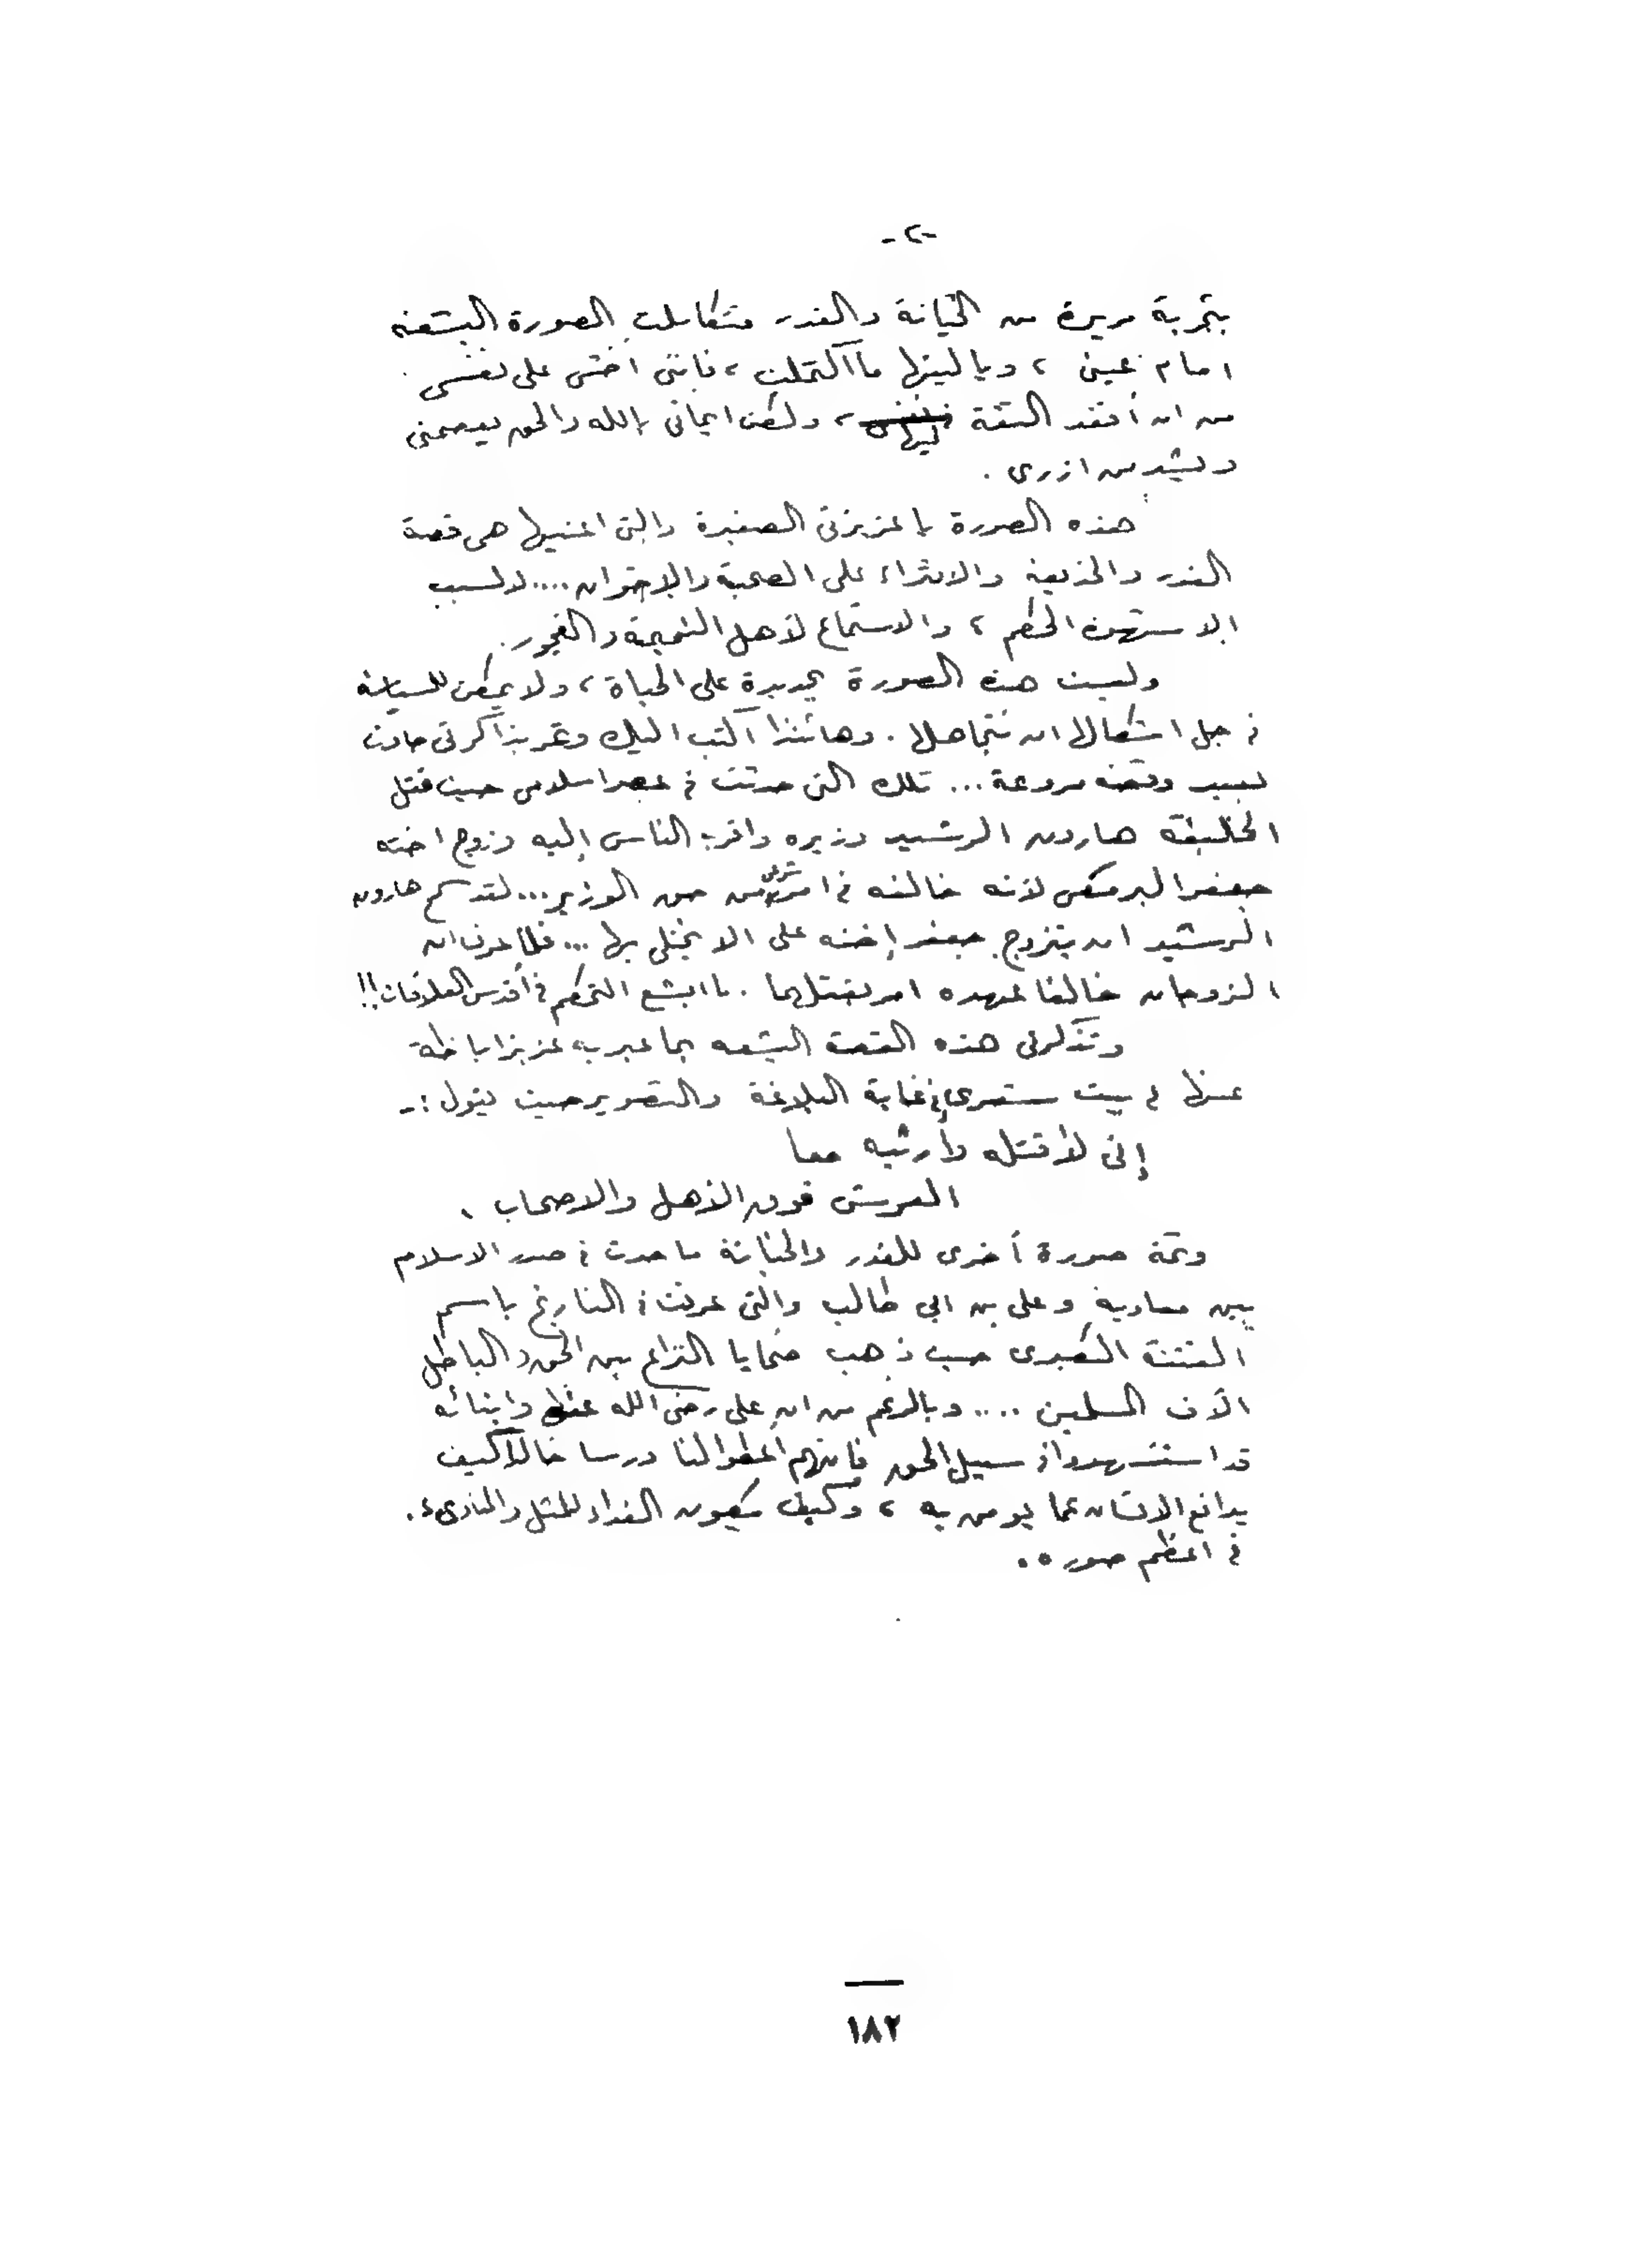 -٢-
بتجربة مريرة من الخيانة والغدر فتكاملت الصورة البشعه
امام عينى ، وياليتها ما اكتملت ، فاننى اخشى على نفسى
من ان أفقد الثقة فيها ، ولكن ايمانى بالله والحق يعصمنى
ويشد من ازرى .
هذه الصورة يا عزيزتى الصغيرة والتى اعنيها هى قصة
الغدر والخديعة والافتراء على الصحبة والإخوان .... لا لسبب
إلا شهوة الحكم ، والاستماع لأهل النميمة والفجور .
وليست هذه الصورة بجديدة على الحياة ، ولا يمكن للسياسة
فى جل اشكالها ان تتجاهلها . وهأنذا اكتب اليك وتمر بذاكرتى حادث
بعيد وقصه مروعة ... تلك التى حدثت فى عصر اسلامى حيث قتل
الخليفة هارون الرشيد وزيره واقرب الناس إليه وزوج اخته
جعفر البرمكى لأنه خالفه فى امر شرعى من حق الوزير ... لقد سمح هارون
الرشيد ان يتزوج جعفر إخته على الا يختلى بها ... فلما عرف ان
الزوجان خالفا عهده امر بقتلهما . ما ابشع التحكم فى أقدس العلاقات !!
وتذكرنى هذه القصة البشعه بما عبر به عزيز اباظة
عنها فى بيت شعرى فى غاية البلاغة والتصوير حيث يقول :-
إنى لأقتله وأرثيه معا
العرش فوق الأهل والاصحاب .
وثمة صورة أخرى للغدر والخيانة ما حدث فى صدر الاسلام
بين معاوية وعلى بن ابى طالب والتى عرفت فى التاريخ باسم
الفتنة الكبرى حيث ذهب ضحايا النزاع بين الحق والباطل
الآف المسلمين .... وبالرغم من ان على رضى الله عنه وابنائه
قد استشهدوا فى سبيل الحق فانهم أعطوا لنا درسا خالدا كيف
يدافع الانسان عما يومن به ، وكيف يكون الفداء للمثل والمبادىء .
فى اعظم صوره .
١٨٢